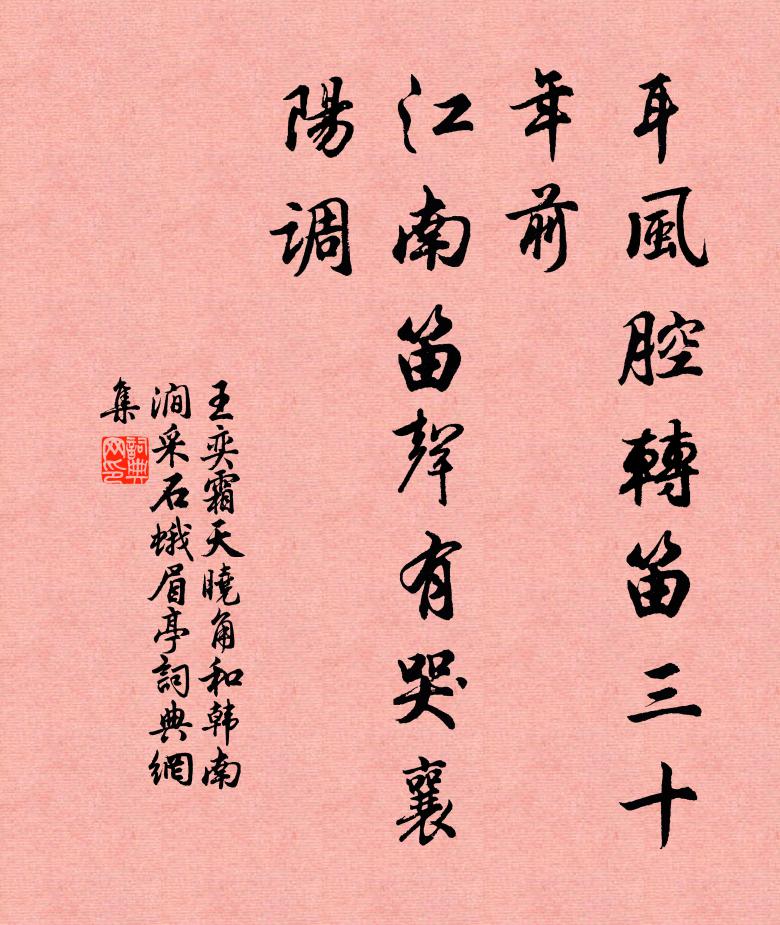 耳風腔轉笛三十
年前
江南笛聲有哭襄
陽調
王奕霜天曉角和韩南
澗采石蛾眉亭詞典網
集
詞典網印